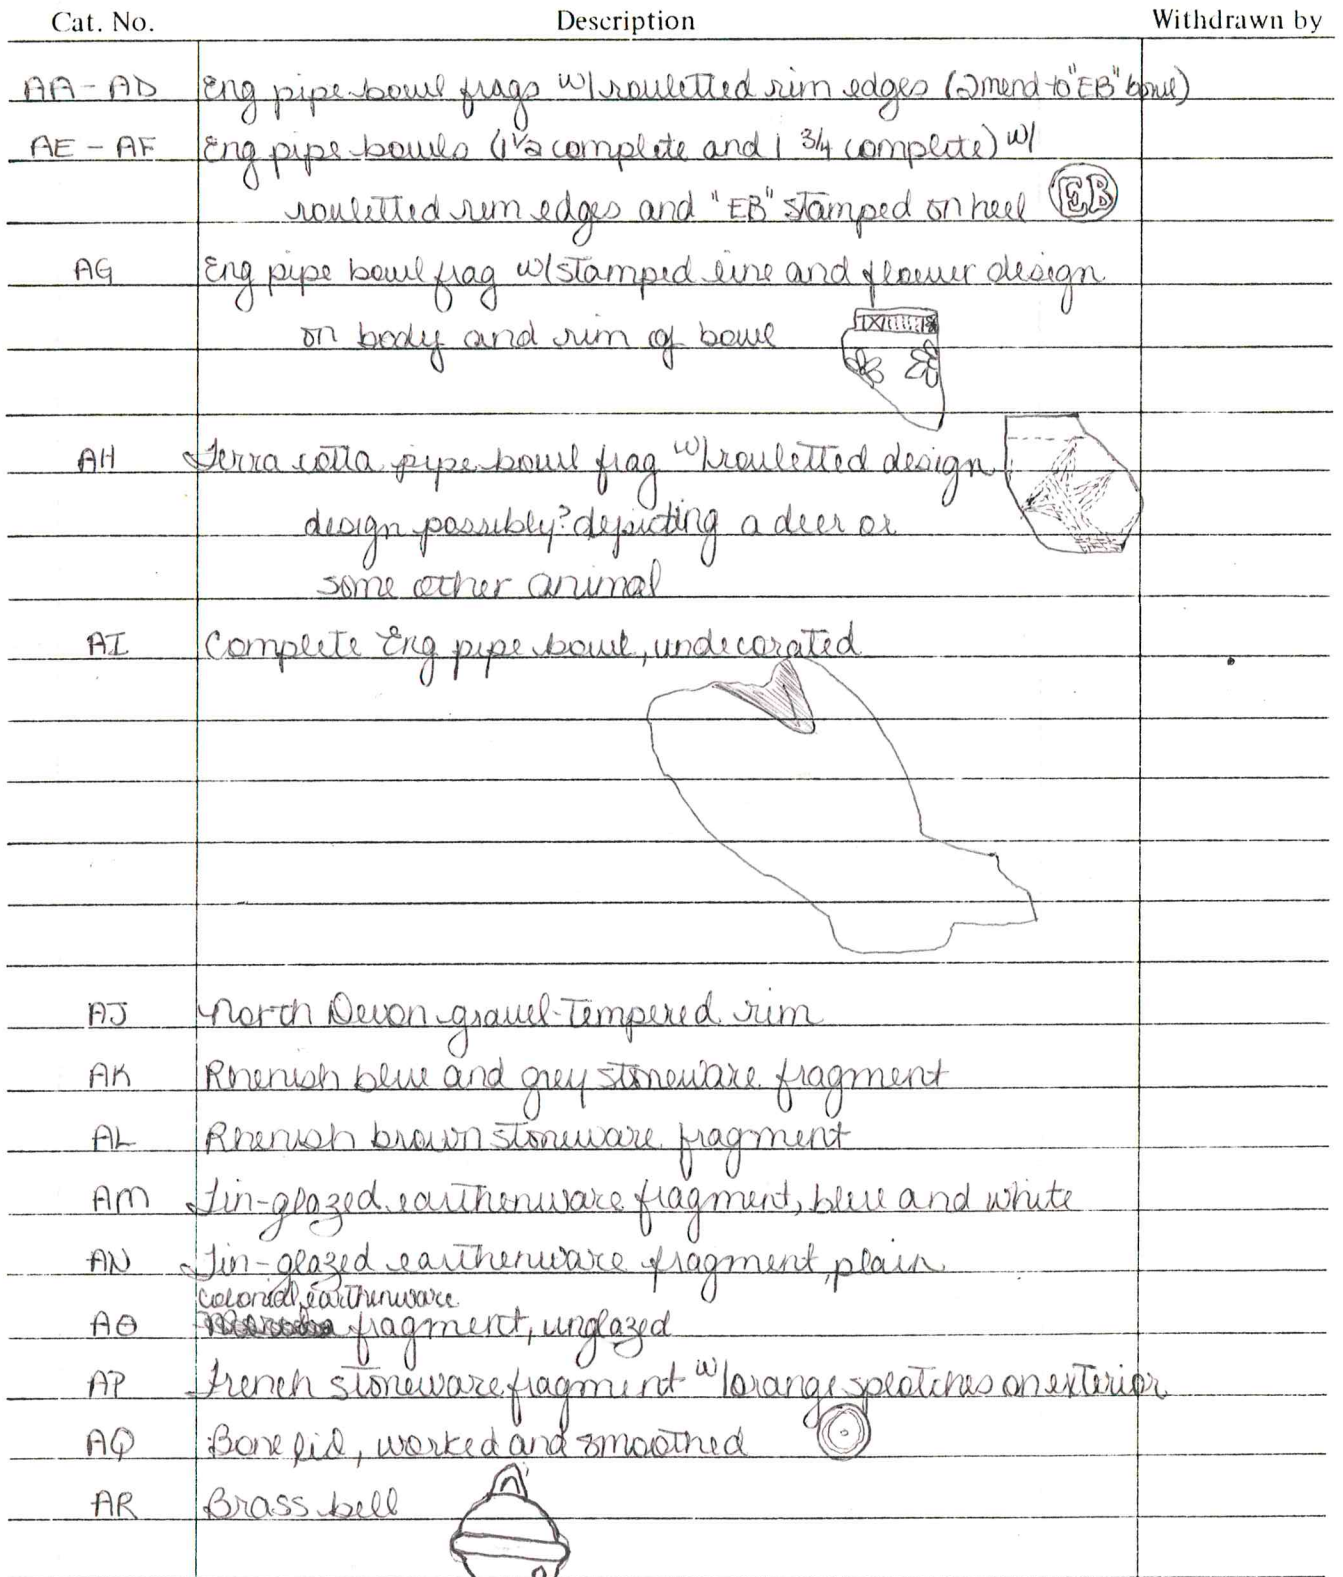 Cat. No. Description Withdrawn by
AA - AD Eng pipe bowl frags w/ rouletted rim edges (2 mend to "EB" bowl)
AE - AF Eng pipe bowls (1 1/2 complete and 1 3/4 complete) w/
rouletted rim edges and "EB" stamped on heel EB
AG Eng pipe bowl frag w/ stamped line and flower design
on body and rim of bowl
AH Terra cotta pipe bowl frag w/ rouletted design
design possibly? depicting a deer or
some other animal
AI Complete Eng pipe bowl, undecorated
AJ North Devon gravel-tempered rim
AK Rhenish blue and grey stoneware fragment
AL Rhenish brown stoneware fragment
AM Tin-glazed earthenware fragment, blue and white
AN Tin-glazed earthenware fragment, plain
colonial earthenware
AO fragment, unglazed
AP French stoneware fragment w/ orange splotches on exterior
AQ Bone lid, worked and smoothed
AR Brass bell